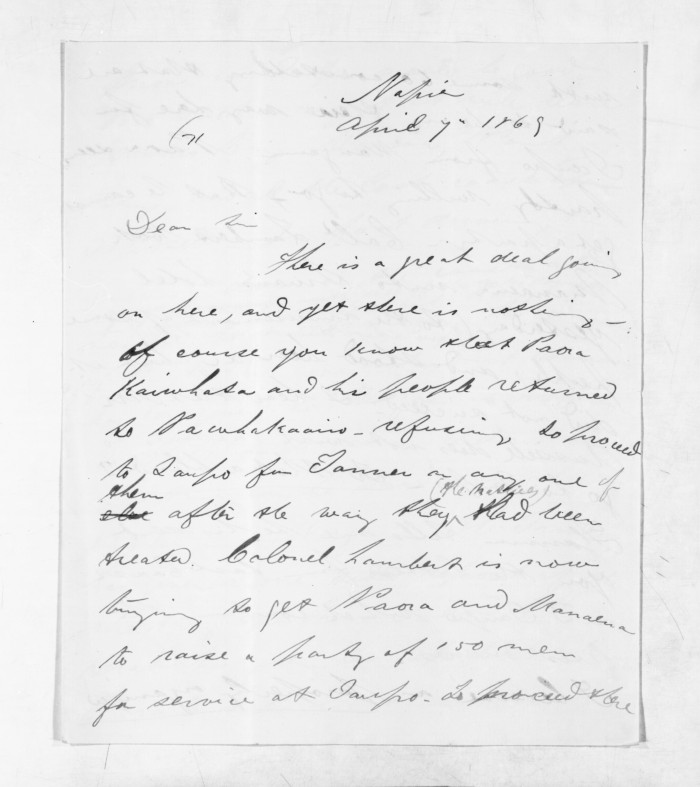 Napier
April 7th 1869
Dear Sir
There is a great deal going
on here, and yet there is nothing -
Of course you know that Paora
Kaiwhata and his people returned
to Pawhakaairo - refusing to proceed
to Taupo for Tanner or any one of
them
after the way they (the Natives) had been
treated. Colonel Lambert is now
trying to get Paora and Manaena
to raise a party of 150 men
for service at Taupo - to proceed there